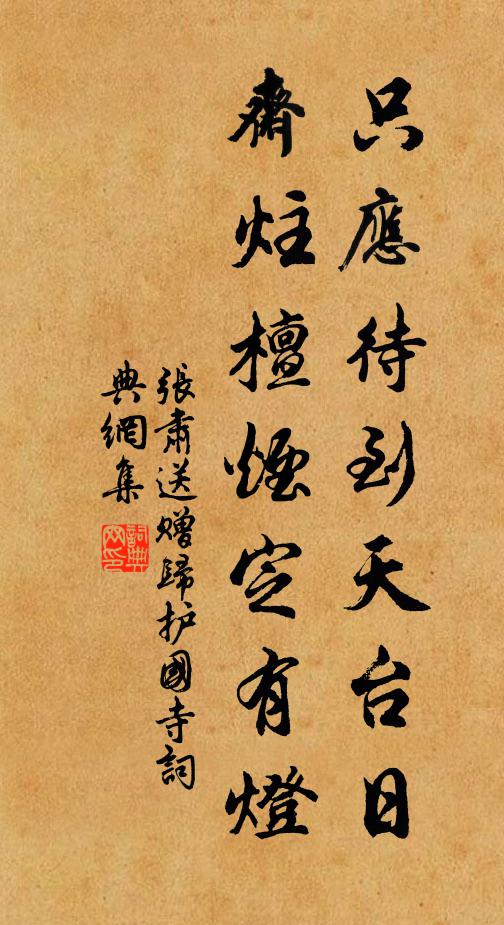 只應待到天台日
齋炷檀煙定有燈
張肅送贈歸护國寺詞
典網集
詞典
网印